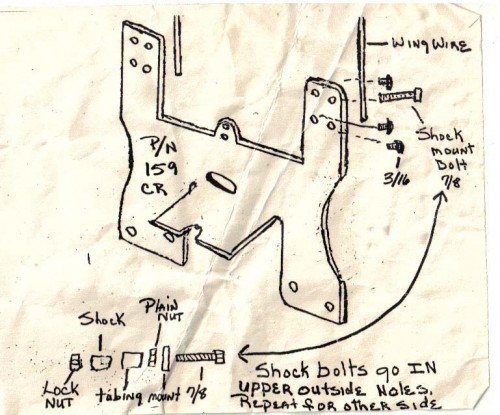 WING WIRE
P/N
159
CR
Shock
mount
Bolt
7/8
3/16
Shock
PlAIN
NUT
LOCK
NUT
tubing
mount
7/8
Shock bolts go IN
UPPER OUTSIDE HOLES.
REPEAT FOR OTHER SIDE